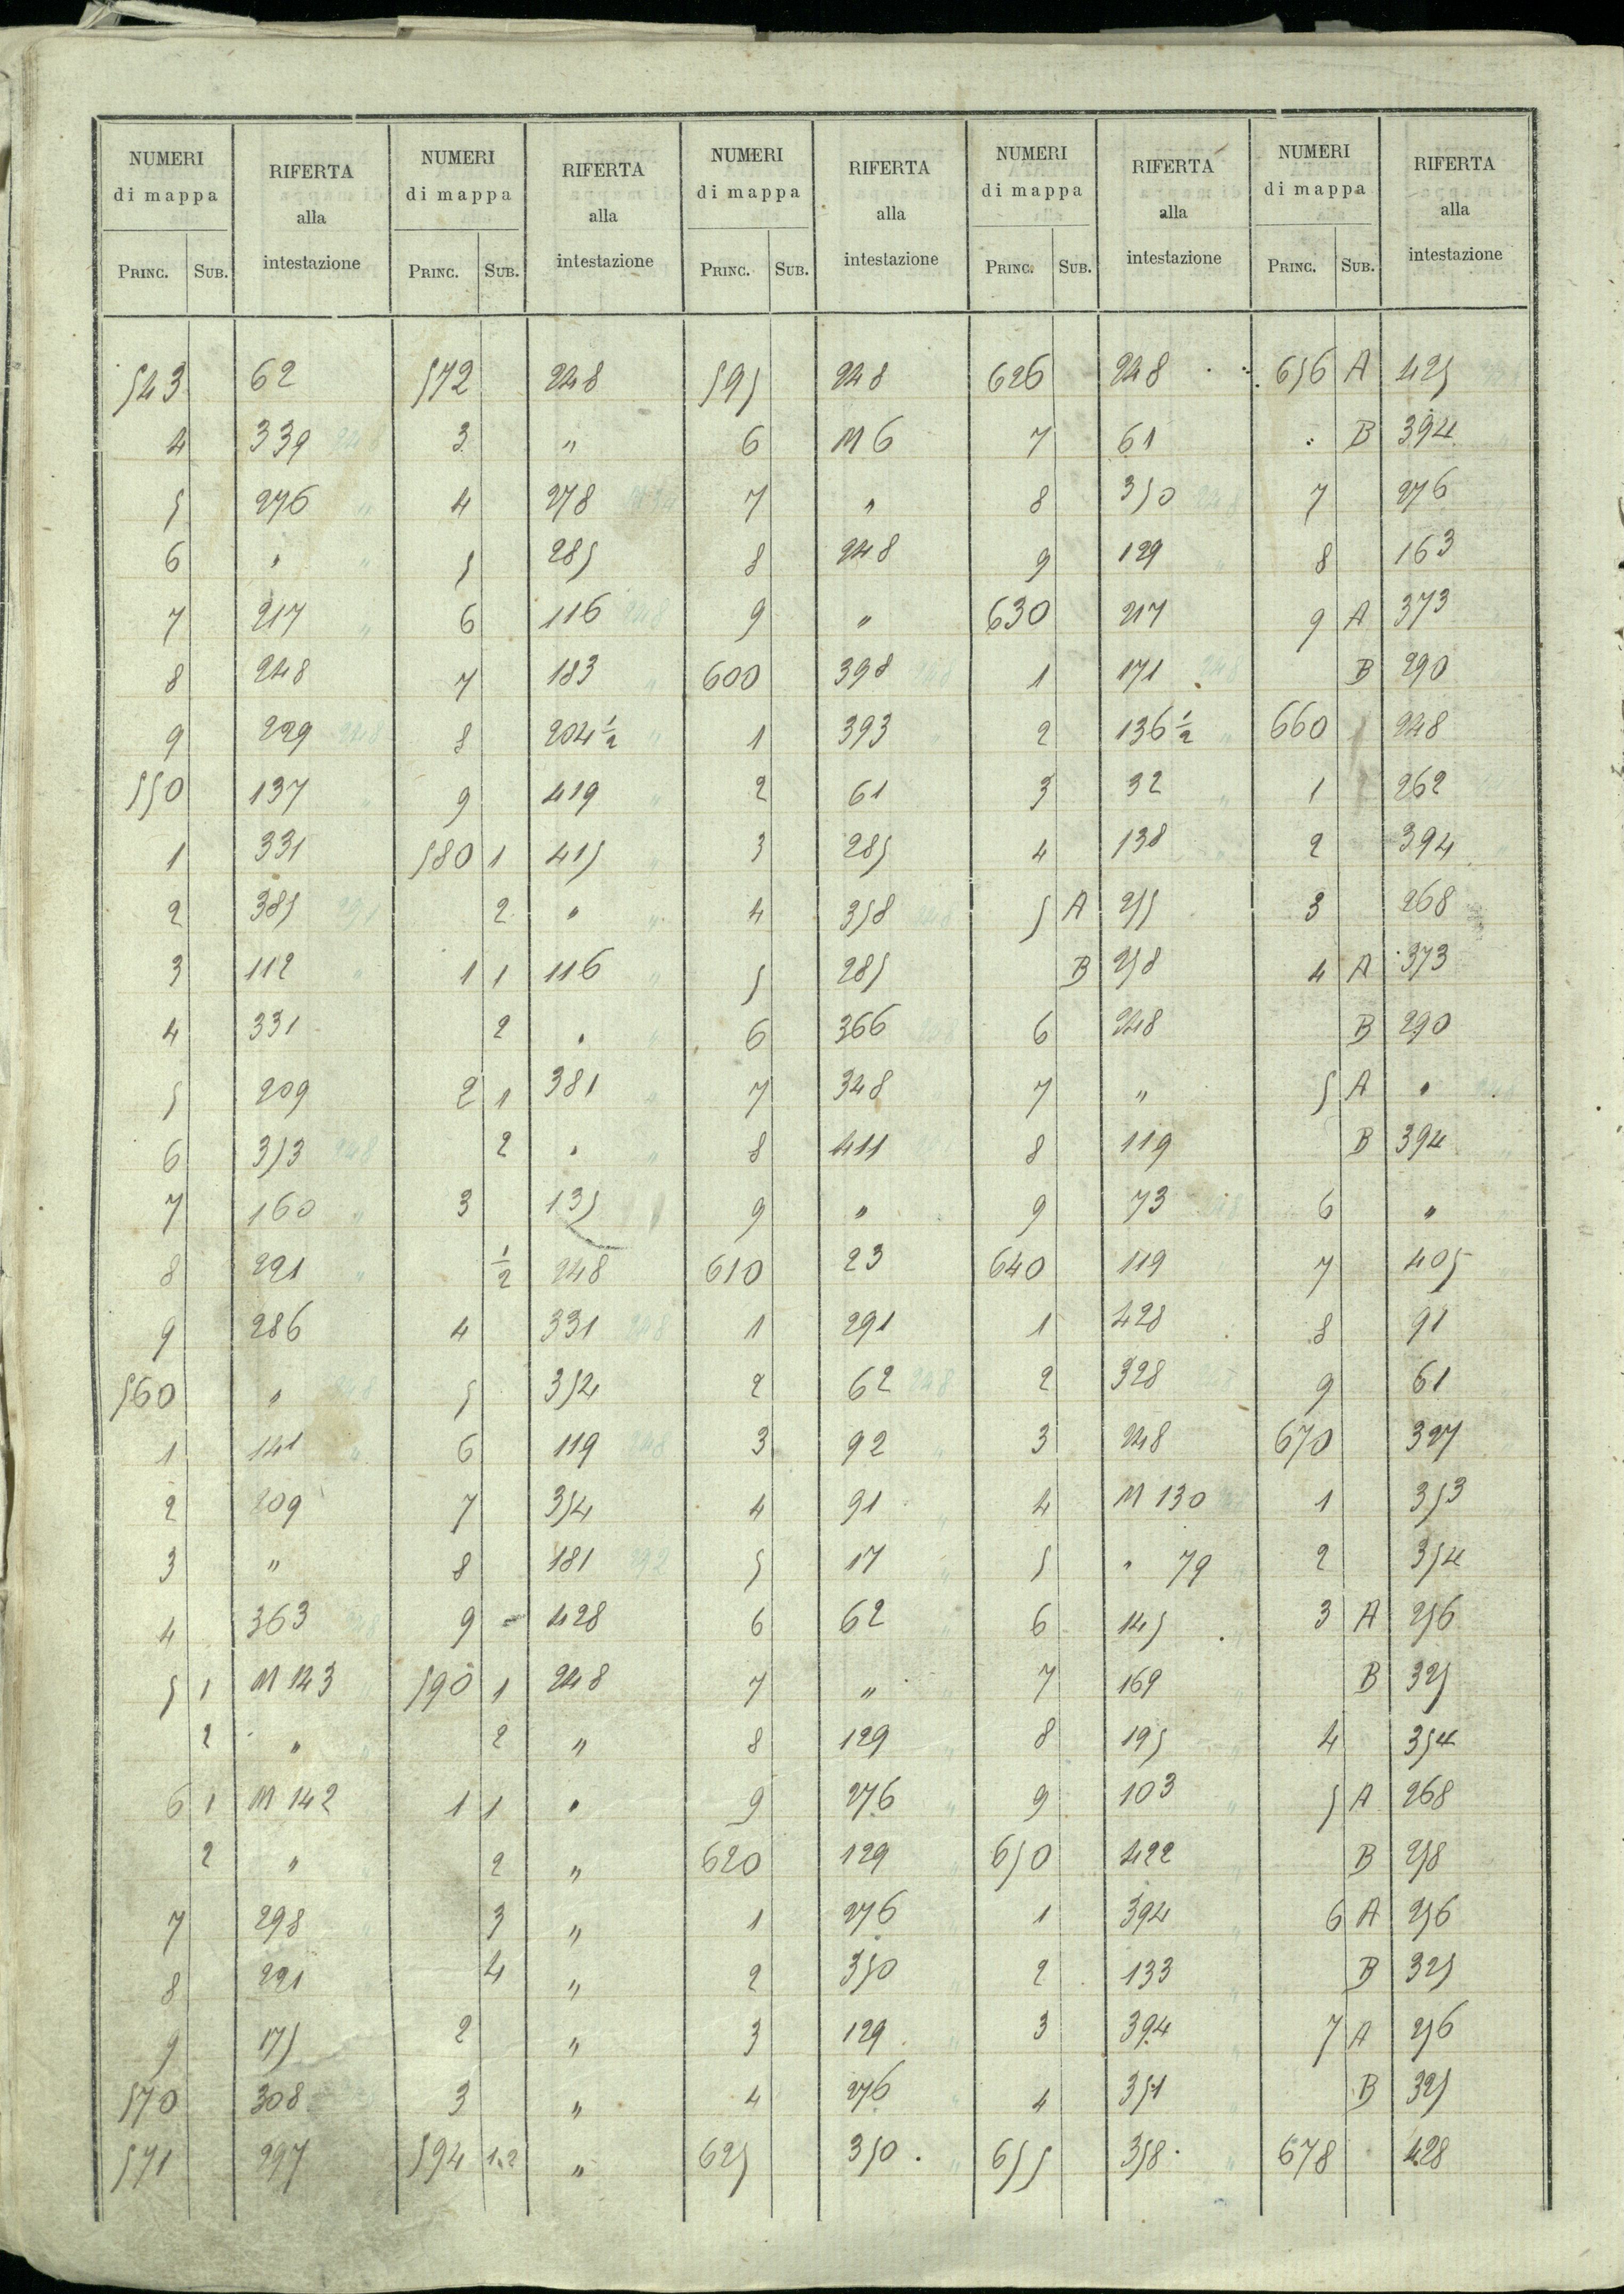 NUMERI di mappa RIFERTA alla intestazione NUMERI di mappa RIFERTA alla intestazione NUMERI di mappa RIFERTA alla intestazione NUMERI di mappa RIFERTA alla intestazione NUMERI di mappa RIFERTA alla intestazione
PRINC. SUB. PRINC. SUB. PRINC. SUB. PRINC. SUB. PRINC. SUB.
543 62 572 248 595 248 626 248 656 A 425
4 339 3 " 6 M 6 7 61 B 394
5 276 4 278 7 " 8 350 7 276
6 " 5 285 8 248 9 129 8 163
7 217 6 116 9 " 630 217 9 A 373
8 248 7 183 600 398 1 171 B 290
9 229 8 204 1/2 1 393 2 136 1/2 660 248
550 137 9 419 2 61 3 32 1 262
1 331 580 1 415 3 285 4 138 2 394
2 385 2 " 4 358 5 A 255 3 268
3 112 1 1 116 5 285 B 258 4 A 373
4 331 2 " 6 366 6 248 B 290
5 209 2 1 381 7 348 7 " 5 A "
6 353 2 " 8 411 8 119 B 394
7 160 3 135 9 " 9 73 6 "
8 221 1/2 248 610 23 640 119 7 405
9 286 4 331 1 291 1 428 8 91
560 " 5 354 2 62 2 328 9 61
1 141 6 119 3 92 3 248 670 327
2 209 7 354 4 91 4 M 130 1 353
3 " 8 181 5 17 5 " 79 2 354
4 363 9 428 6 62 6 145 3 A 256
5 1 M 143 590 1 248 7 " 7 169 B 325
2 " 2 " 8 129 8 195 4 354
6 1 M 142 1 1 " 9 276 9 103 5 A 268
2 " 2 " 620 129 650 422 B 258
7 298 3 " 1 276 1 394 6 A 256
8 221 4 " 2 350 2 133 B 325
9 175 2 " 3 129 3 394 7 A 256
570 308 3 " 4 276 4 351 B 325
571 297 594 1.2 " 625 350 655 358 678 428